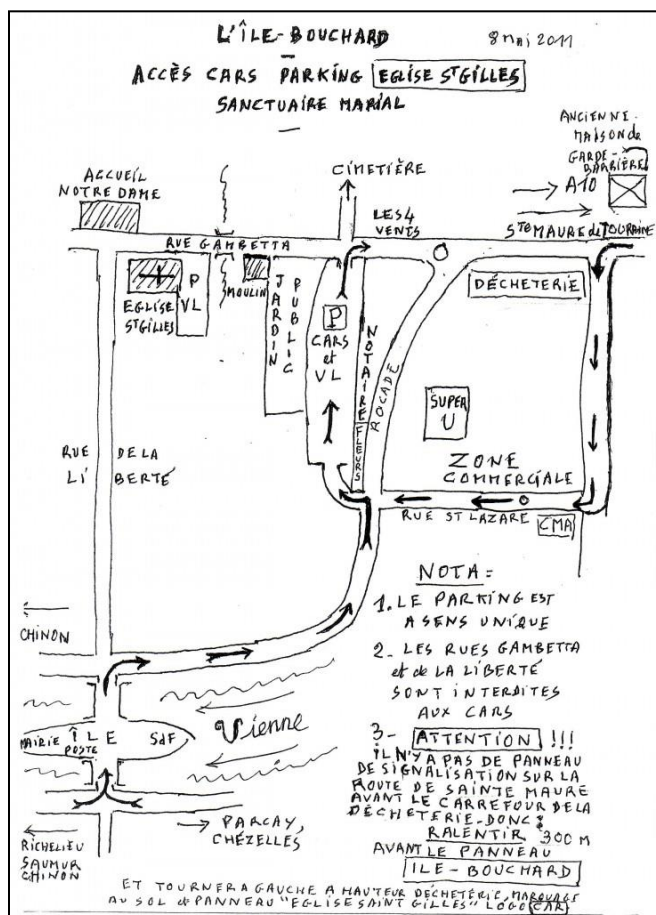 L'ÎLE-BOUCHARD
8 mai 2011
ACCÈS CARS PARKING EGLISE ST GILLES
SANCTUAIRE MARIAL
ANCIENNE
MAISON de
GARDE-
BARRIÈRE
ACCUEIL
NOTRE DAME
CIMETIÈRE
A10
LES 4
VENTS
STE MAURE de TOURAINE
RUE GAMBETTA
P
VL
EGLISE
ST GILLES
MOULIN
JARDIN
PUBLIC
P
CARS
et
VL
NOTAIRE
FLEURS
ROCADE
DÉCHETERIE
SUPER
U
ZONE
COMMERCIALE
RUE DE LA
LI BERTÉ
RUE ST LAZARE
CMA
CHINON
Vienne
MAIRIE ÎLE SdF
POSTE
PARCAY,
CHÉZELLES
RICHELIEU
SAUMUR
CHINON
NOTA =
1. LE PARKING EST
A SENS UNIQUE
2- LES RUES GAMBETTA
et de LA LIBERTÉ
SONT INTERDITES
AUX CARS
3- ATTENTION !!!
IL N'Y A PAS DE PANNEAU
DE SIGNALISATION SUR LA
ROUTE DE SAINTE MAURE
AVANT LE CARREFOUR DE LA
DÈCHETERIE-DONC :
RALENTIR 300 M
AVANT LE PANNEAU
ILE-BOUCHARD
ET TOURNER A GAUCHE A HAUTEUR DÉCHETERIE, MARQUAGE
AU SOL et PANNEAU "EGLISE SAINT GILLES" LOGO CAR